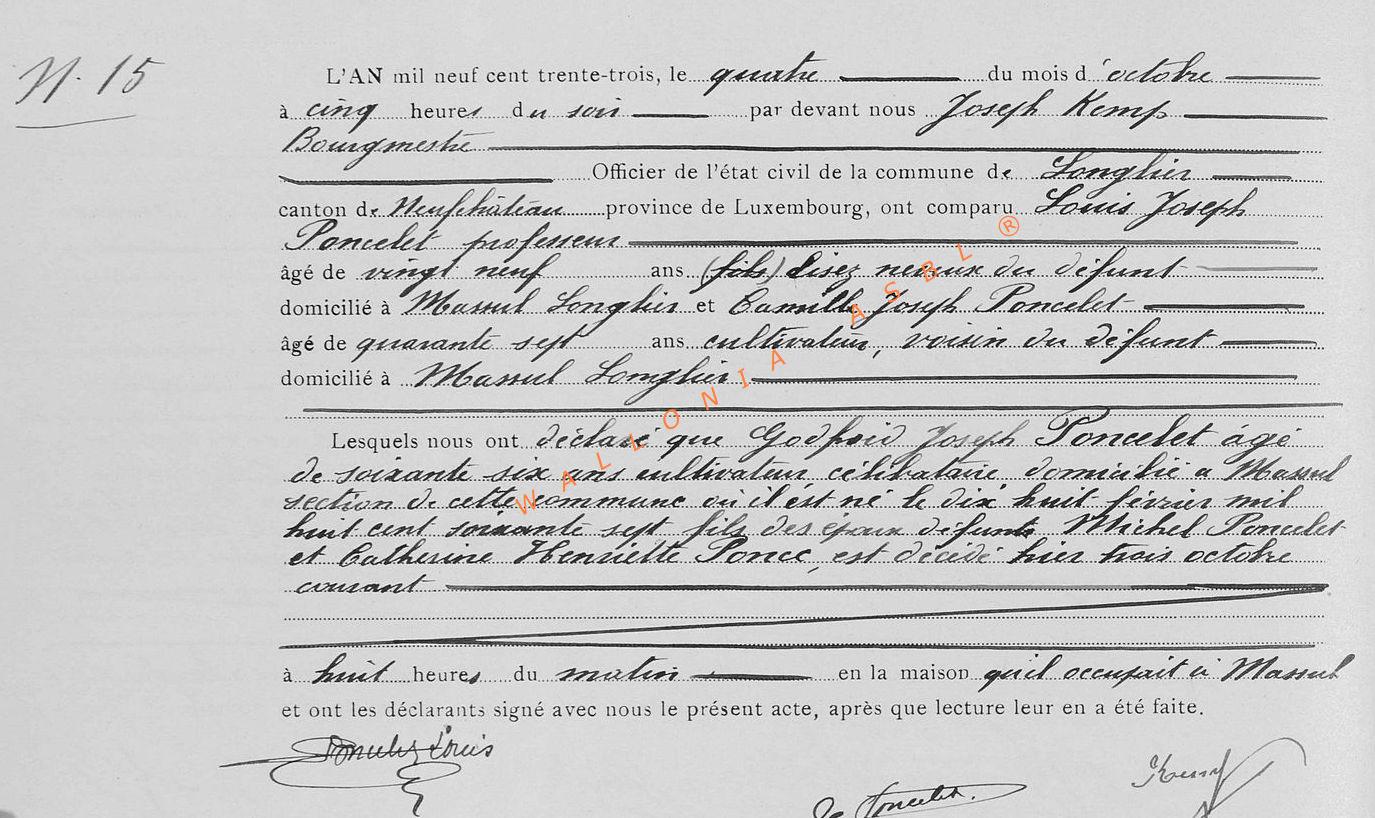 N. 15
L'AN mil neuf cent trente-trois, le quatre du mois d'octobre
à cinq heures du soir par devant nous Joseph Kemp
Bourgmestre
Officier de l'état civil de la commune de Longlier
canton de Neufchâteau province de Luxembourg, ont comparu Louis Joseph
Poncelet professeur
âgé de vingt neuf ans (fils) lisez neveux du défunt
domicilié à Massul Longlier et Camille Joseph Poncelet
âgé de quarante sept ans cultivateur, voisin du défunt
domicilié à Massul Longlier
Lesquels nous ont déclaré que Godfroid Joseph Poncelet âgé
de soixante six ans cultivateur, célibataire, domicilié à Massul
section de cette commune où il est né le dix huit février mil
huit cent soixante sept fils des époux défunts Michel Poncelet
et Catherine Henriette Ponce, est décédé hier trois octobre
courant
à huit heures du matin en la maison qu'il occupait à Massul
et ont les déclarants signé avec nous le présent acte, après que lecture leur en a été faite.
Poncelet Louis
Poncelet.
Kemp
WALLONIA ASBL ®